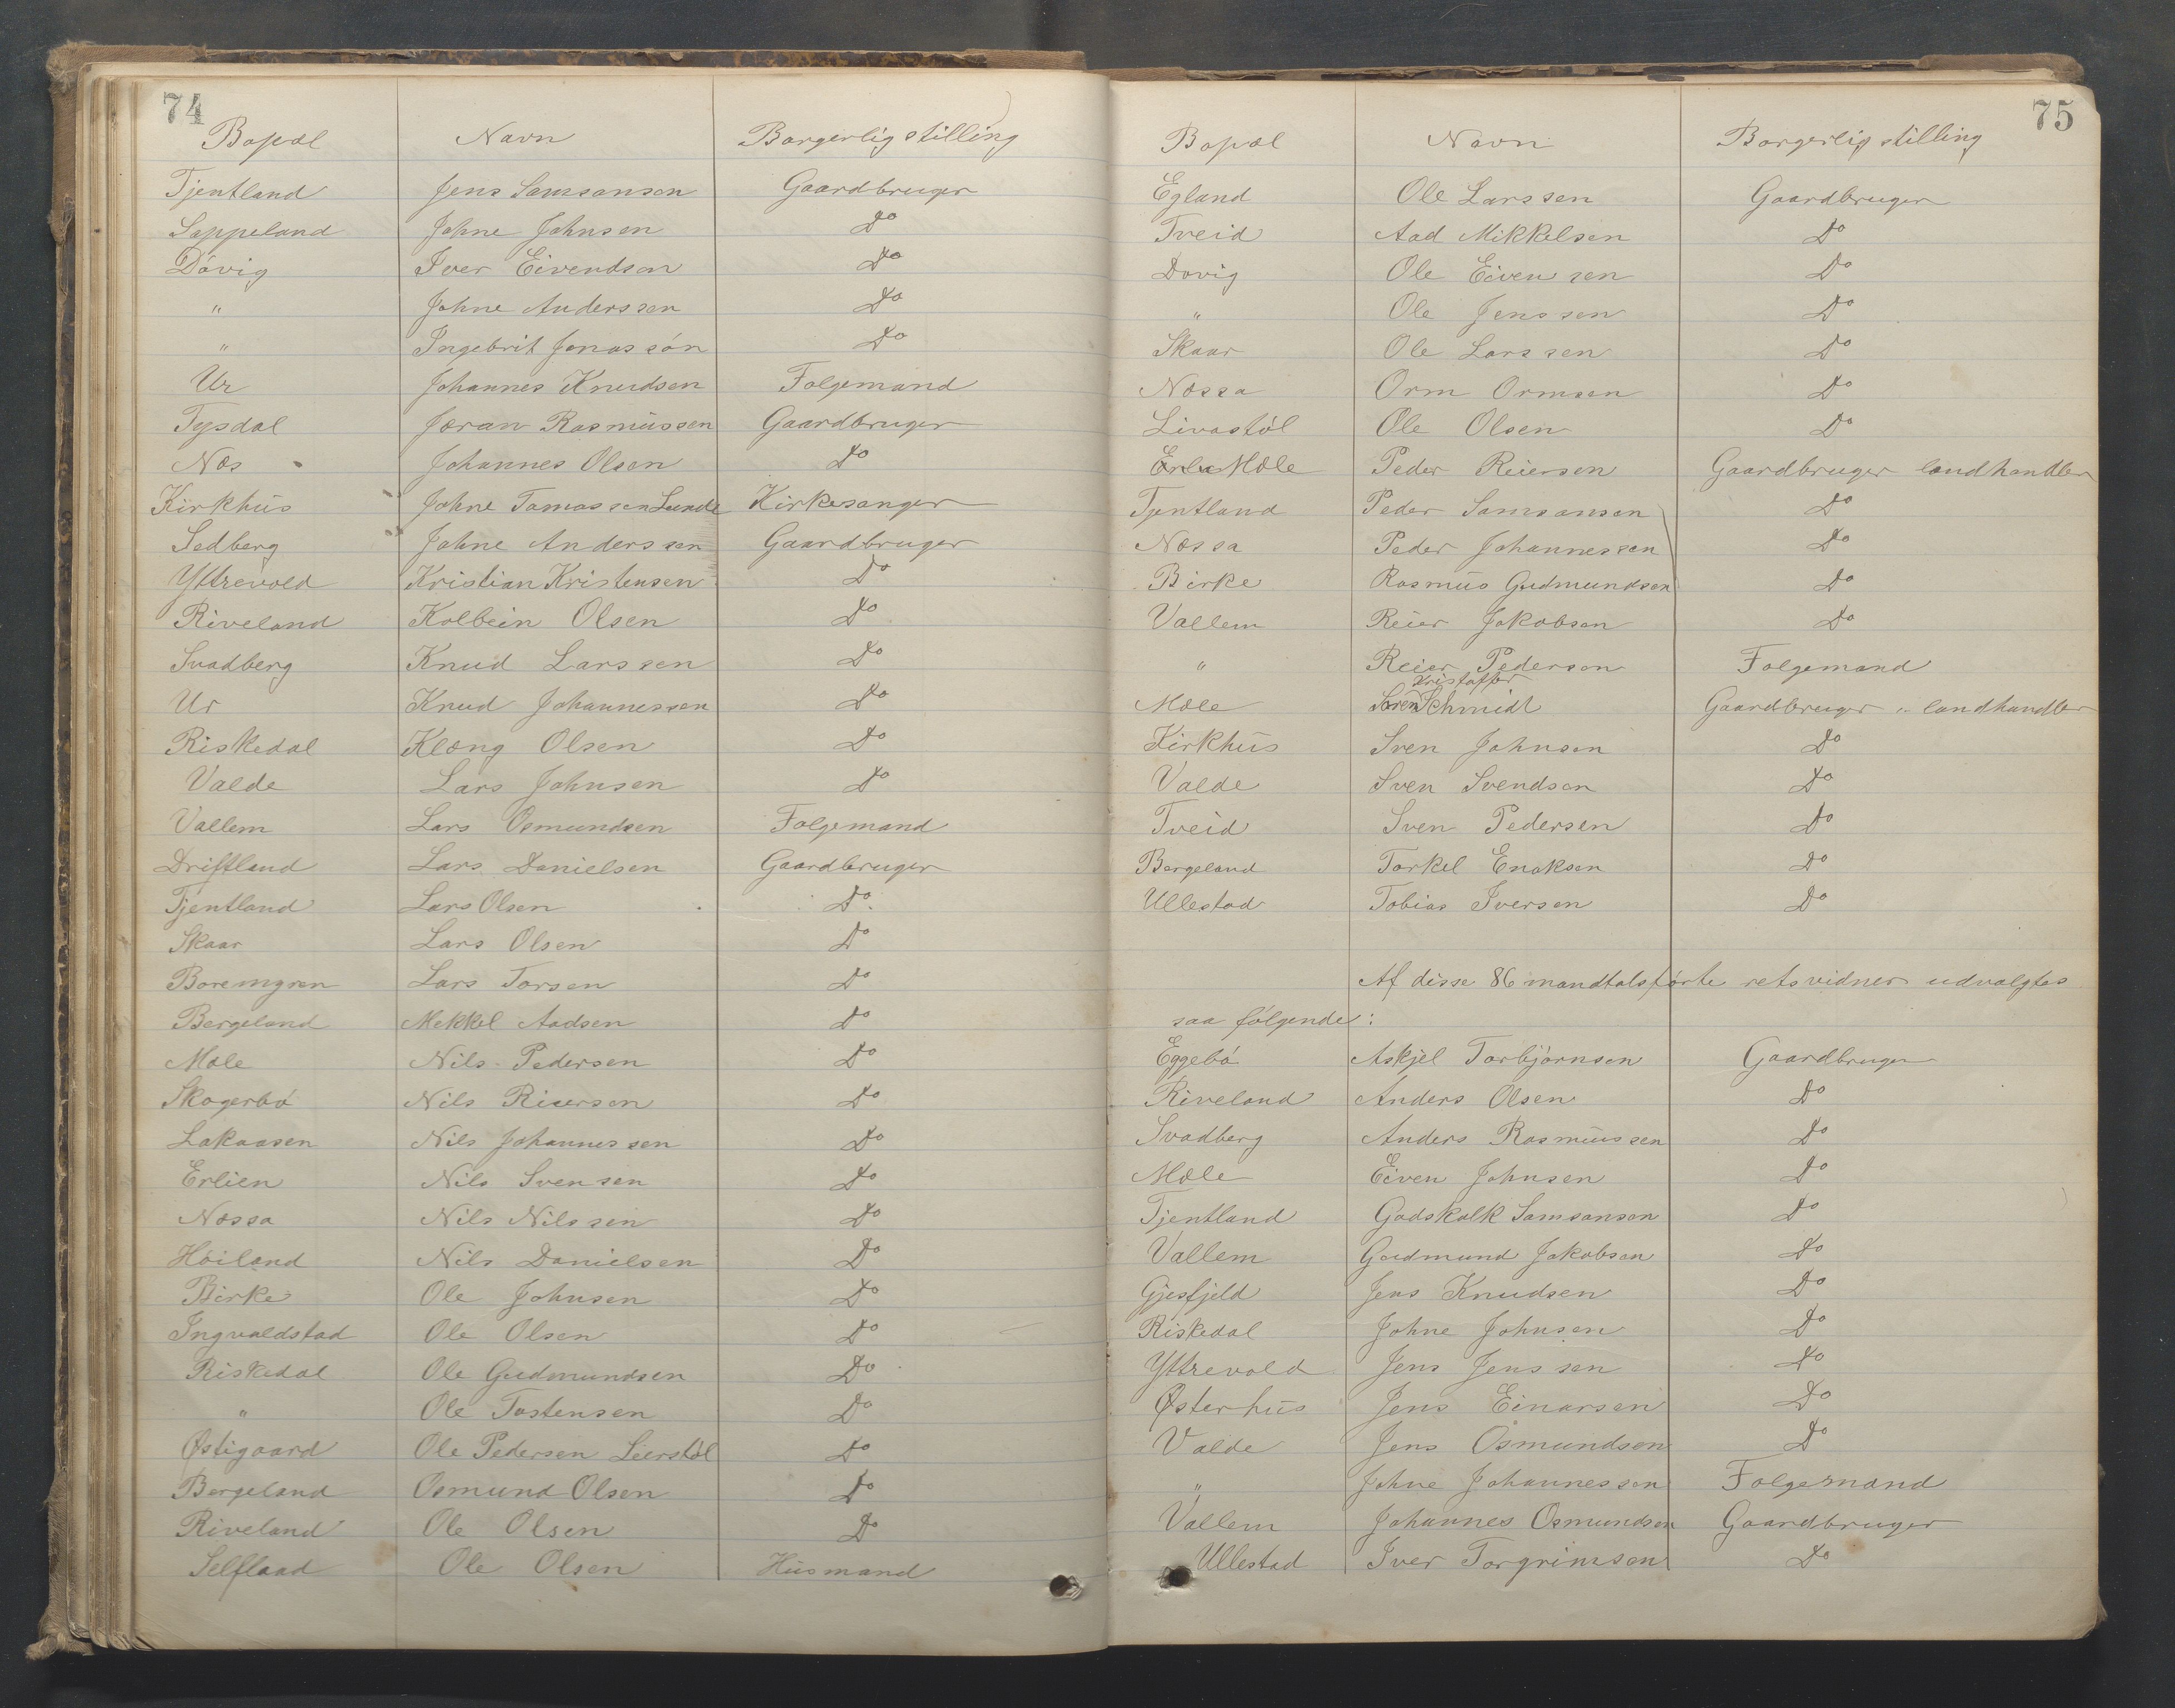 74
Bopæl Navn Borgerlig stilling
Tjentland Jens Samsonsen Gaardbruger
Soppeland Johne Johnsen Do
Dövig Iver Eivendsen Do
" Johne Anderssen Do
" Ingebrit Jonassön Do
Ur Johannes Knudsen Folgemand
Tysdal Joran Rasmussen Gaardbruger
Nos Johannes Olsen Do
Kirkhus Johne Tomassen Lunde Kirkesanger
Sedberg Johne Anderssen Gaardbruger
Yttrevold Kristian Kristensen Do
Riveland Kolbein Olsen Do
Svadberg Knud Larssen Do
Ur Knud Johannessen Do
Riskedal Klæng Olsen Do
Valde Lars Johnsen Do
Vallem Lars Osmundsen Folgemand
Driftland Lars Danielsen Gaardbruger
Tjentland Lars Olsen Do.
Skaar Lars Olsen Do
Boremyren Lars Torsen Do
Bergeland Mekkel Aadsen Do
Mæle Nils Pedersen Do
Skogerbö Nils Riersen Do
Lakaasen Nils Johannessen Do
Erlien Nils Svensen Do
Nossa Nils Nilssen Do
Höiland Nils Danielsen Do
Birke Ole Johnsen Do
Ingvaldstad Ole Olsen Do
Riskedal Ole Gudmundsen Do
" Ole Tostensen Do
Østigaard Ole Pedersen Leerstöl Do
Bergeland Osmund Olsen Do
Riveland Ole Olsen Do
Selflaad Ole Olsen Husmand
75
Bopæl Navn Borgerlig stilling
Egland Ole Larssen Gaardbruger
Tveid Aad Mikkelsen Do
Dovig Ole Eivensen Do
" Ole Jenssen Do
Skaar Ole Larssen Do
Nossa Orm Ormsen Do
Livastöl Ole Olsen Do
Mæle Peder Reiersen Gaardbruger landhandler
Tjentland Peder Samsonsen Do
Nossa Peder Johannessen Do
Birke Rasmus Gudmundsen Do
Vallem Reier Jakobsen Do
" Reier Pedersen Folgemand
Kristoffer
Mæle Sören Schmidt Gaardbruger " landhandler
Kirkhus Sven Johnsen Do
Valde Sven Svendsen Do
Tveid Sven Pedersen Do
Bergeland Torkel Enoksen Do
Ullestad Tobias Iversen Do
Af disse 86 mandtalsförte retsvidner udvalgtes
saa fölgende:
Eggebö Askjel Torbjörnsen Gaardbruger
Riveland Anders Olsen Do
Svadberg Anders Rasmussen Do
Mæle Eiven Johnsen Do
Tjentland Godskalk Samsonsen Do
Vallem Gudmund Jakobsen Do
Gjesfjeld Jens Knudsen Do
Riskedal Johne Johnsen Do
Yttrevold Jens Jenssen Do
Østerhus Jens Einarsen Do
Valde Jens Osmundsen Do
" Johne Johannessen Folgemand
Vallem Johannes Osmundsen Gaardbruger
Ullestad Iver Torgrimsen Do